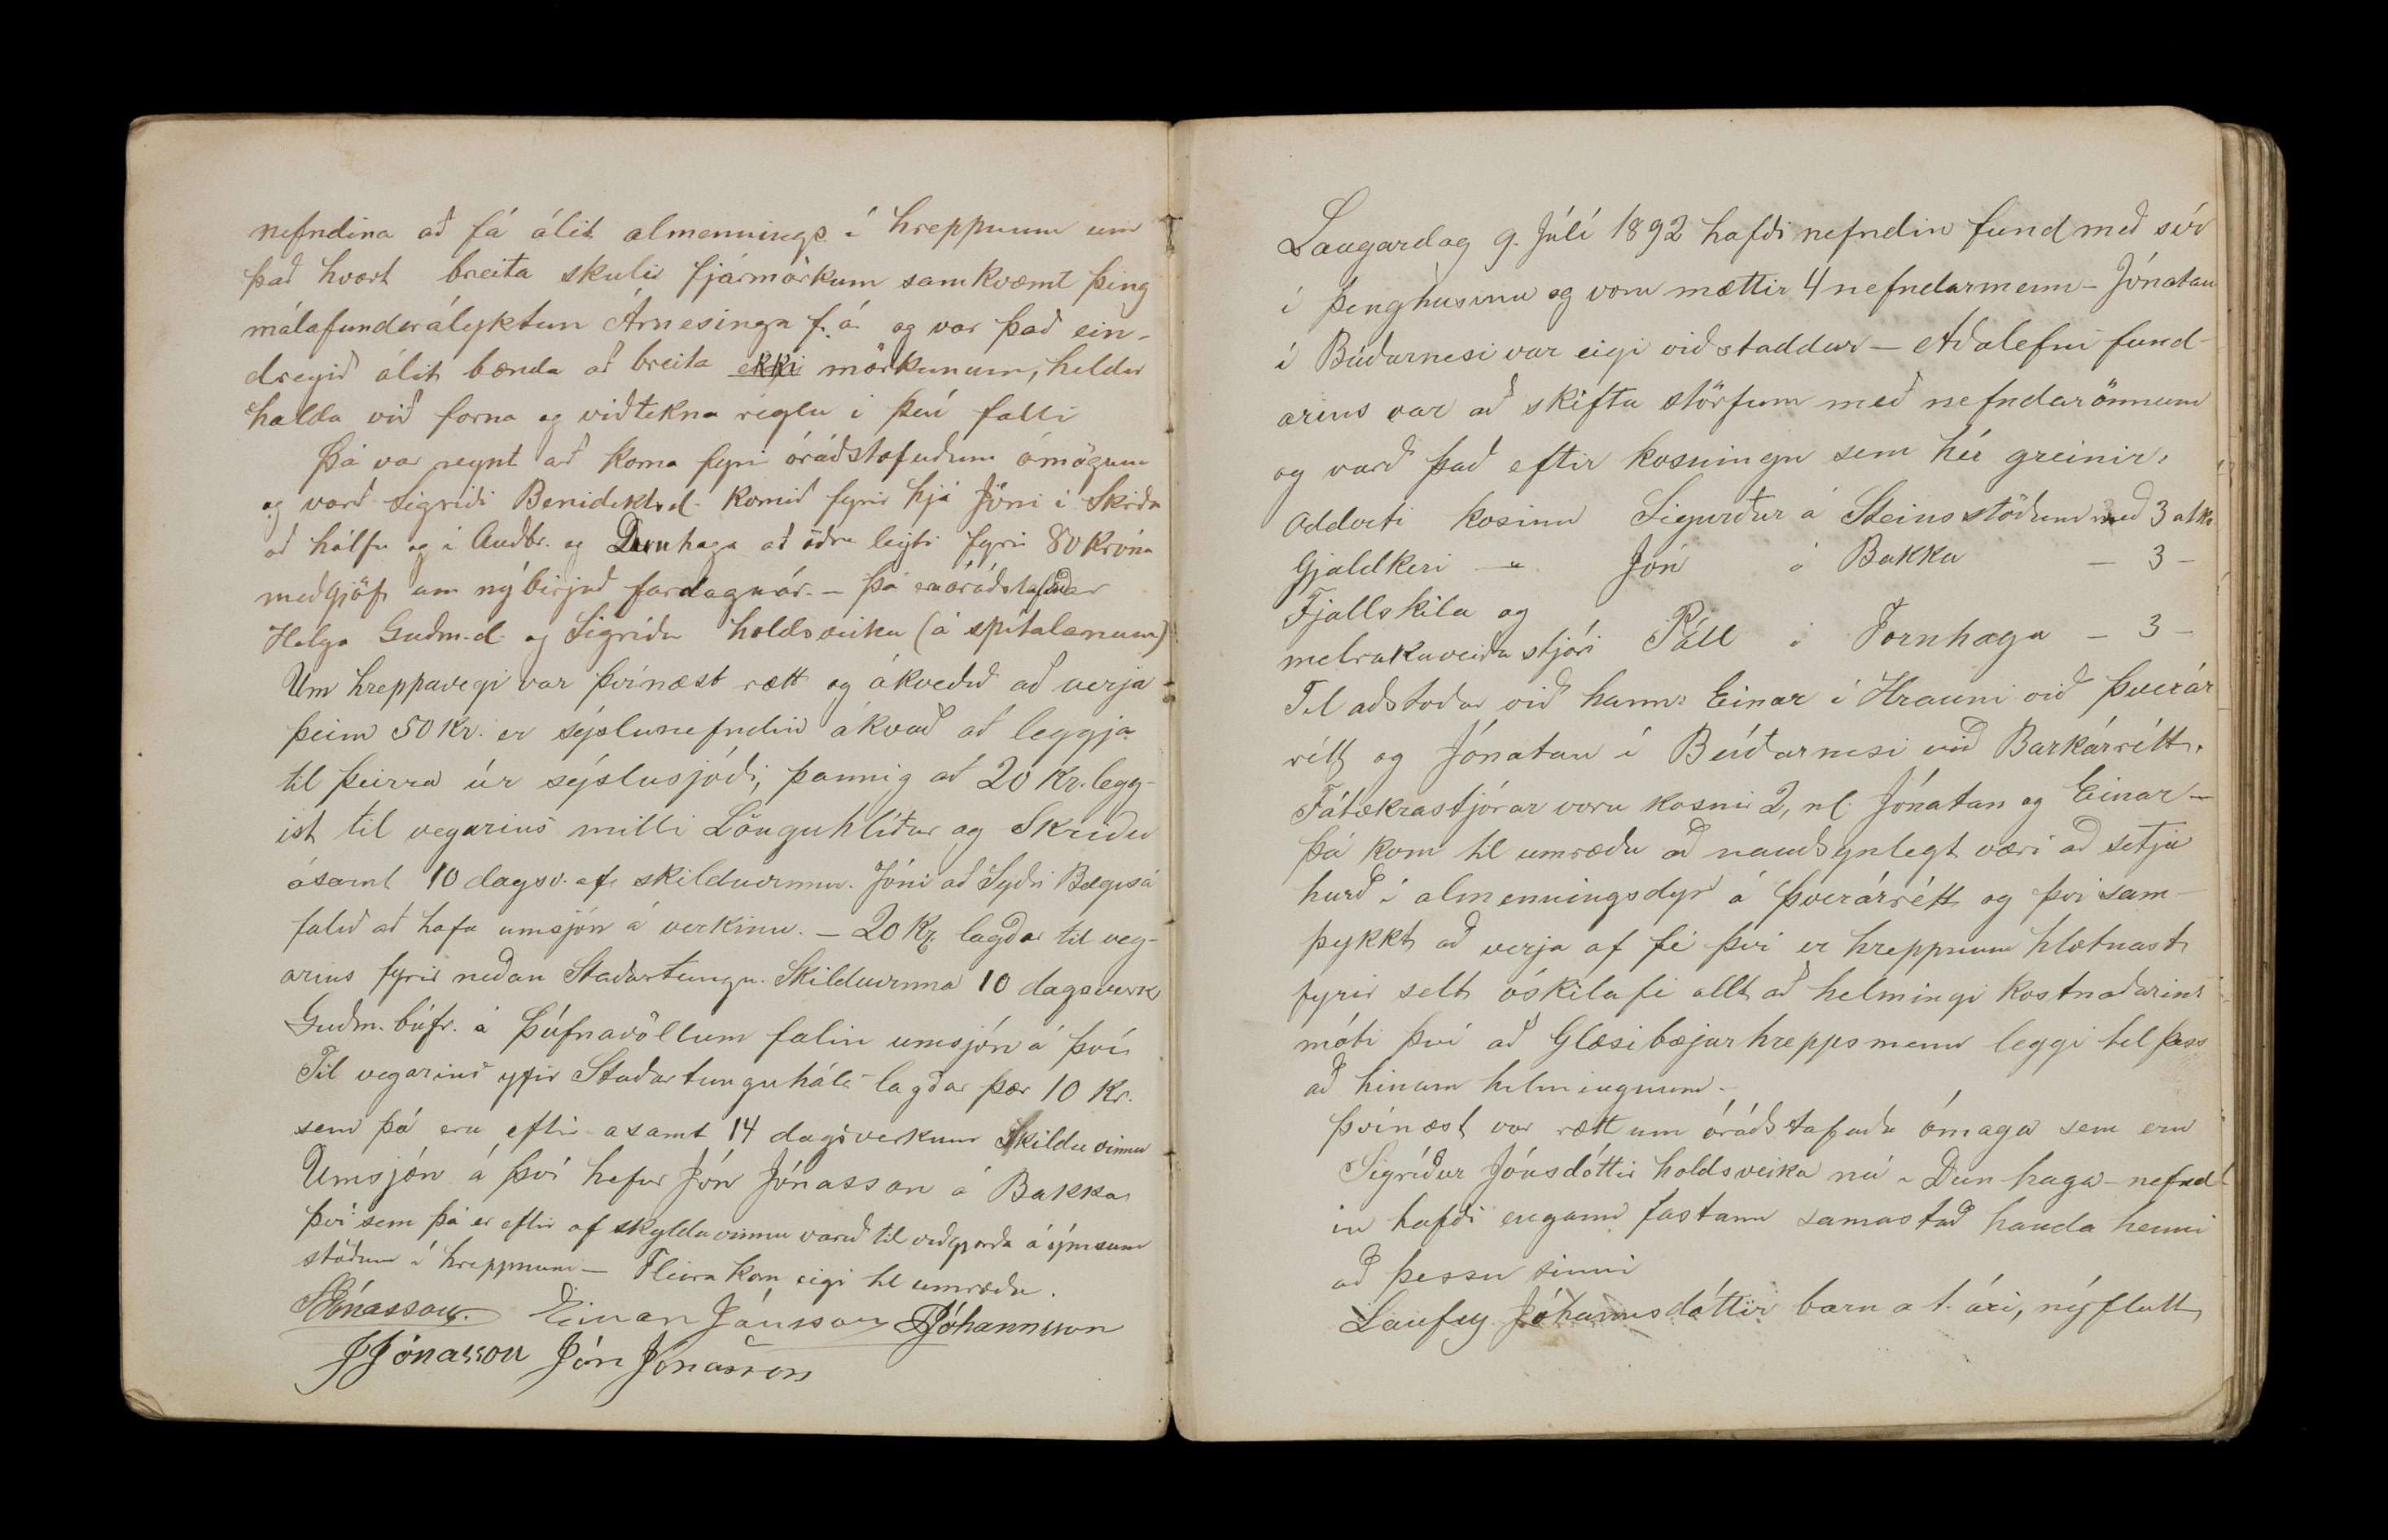 nefndina að fá álit almennings í hreppnum um
það hvort breita skuli fjármörkum samkvæmt þing
málafundarályktun Árnesinga f. á. og var það ein-
dregið álit bænda að breita ekki mörkunum, heldur
halda við forna og viðtekna reglu í því falli
Þá var reynt að koma fyri óráðstöfuðum ómögum
og varð Sigríði Benidiktsd. komið fyrir hjá Jóni í Skriðu
að hálfu og í Auðbr. og Dunhaga að öðru leyti fyrir 80 króna
meðgjöf um nýbirjað fardagnár. - Þá eru óráðstafaðar
Helga Guðm.d. og Sigríður holdsveika (á spítalanum)
Um hreppavegi var þvínæst rætt og ákveðið að verja
þeim 50 kr. er sýslunefndin ákvað að leggja
til þeirra úr sýslusjóði, þannig að 20 kr. legg-
ist til vegarins milli Lönguhlíðar og Skriðu
ásamt 10 dagsv. af skilduvinnu. Jóni að Syðri Bægisá
falið að hafa umsjón á verkinu. - 20 kr. lagðar til veg-
arins fyrir neðan Staðartungu. Skilduvinna 10 dagsverk
Guðm. búfr. á Þúfnavöllum falin umsjón á því
Til vegarins yfir Staðartunguháls lagðar þær 10 kr.
sem þá eru eftir asamt 14 dagsverkum Skilduvinnu
Umsjón á því hefur Jón Jónasson á Bakka
því sem þá er eftir af skylduvinnu varið til viðgjorða á ýmsum
stöðum í hreppnum - Fleira kom eigi til umræðu.
SJónasson. Einar Jónsson PJóhannsson
JJónasson Jón Jónasson
Laugardag 9. Júlí 1892 hafði nefndin fund með sér
í þinghúsinu og voru mættir 4 nefndarmenn - Jónatan
í Búðarnesi var eigi viðstaddur - Aðalefni fund-
arins var að skifta störfum með nefndarönnum
og varð það eftir kosningu sem hér greinir.
Oddviti kosinn Sigurður á Steinsstöðum með 3 atkv.
Gjaldkeri -"- Jón á Bakka - 3 -
Fjallskila og
melrakaveiða stjóri Páll í Fornhaga - 3 -
Til aðstoðar við hann: Einar í Hrauni við Þverár
rétt og Jónatan í Búðarnesi við Barkárrétt.
Fátækrastjórar voru kosnir 2, nl. Jónatan og Einar -
Þá kom til umræðu að nauðsynlegt væri að setja
hurð í almenningsdyr á Þverárrétt og því sam-
þykkt að verja af fé því er hreppnum hlotnast
fyrir selt óskilafé allt að helmingi kostnaðarins
móti því að Glæsibæjarhreppsmenn leggi til þess
að hinum helmingnum -
Þvínæst var rætt um óráðstafaða ómaga sem eru
Sigríður Jónsdóttir holdsveika nú í Dunhaga - nefnd
in hafði engann fastann samastað handa henni
að þessu sinni
Laufey Jóhannsdóttir barn a 1. ári, nýflutt